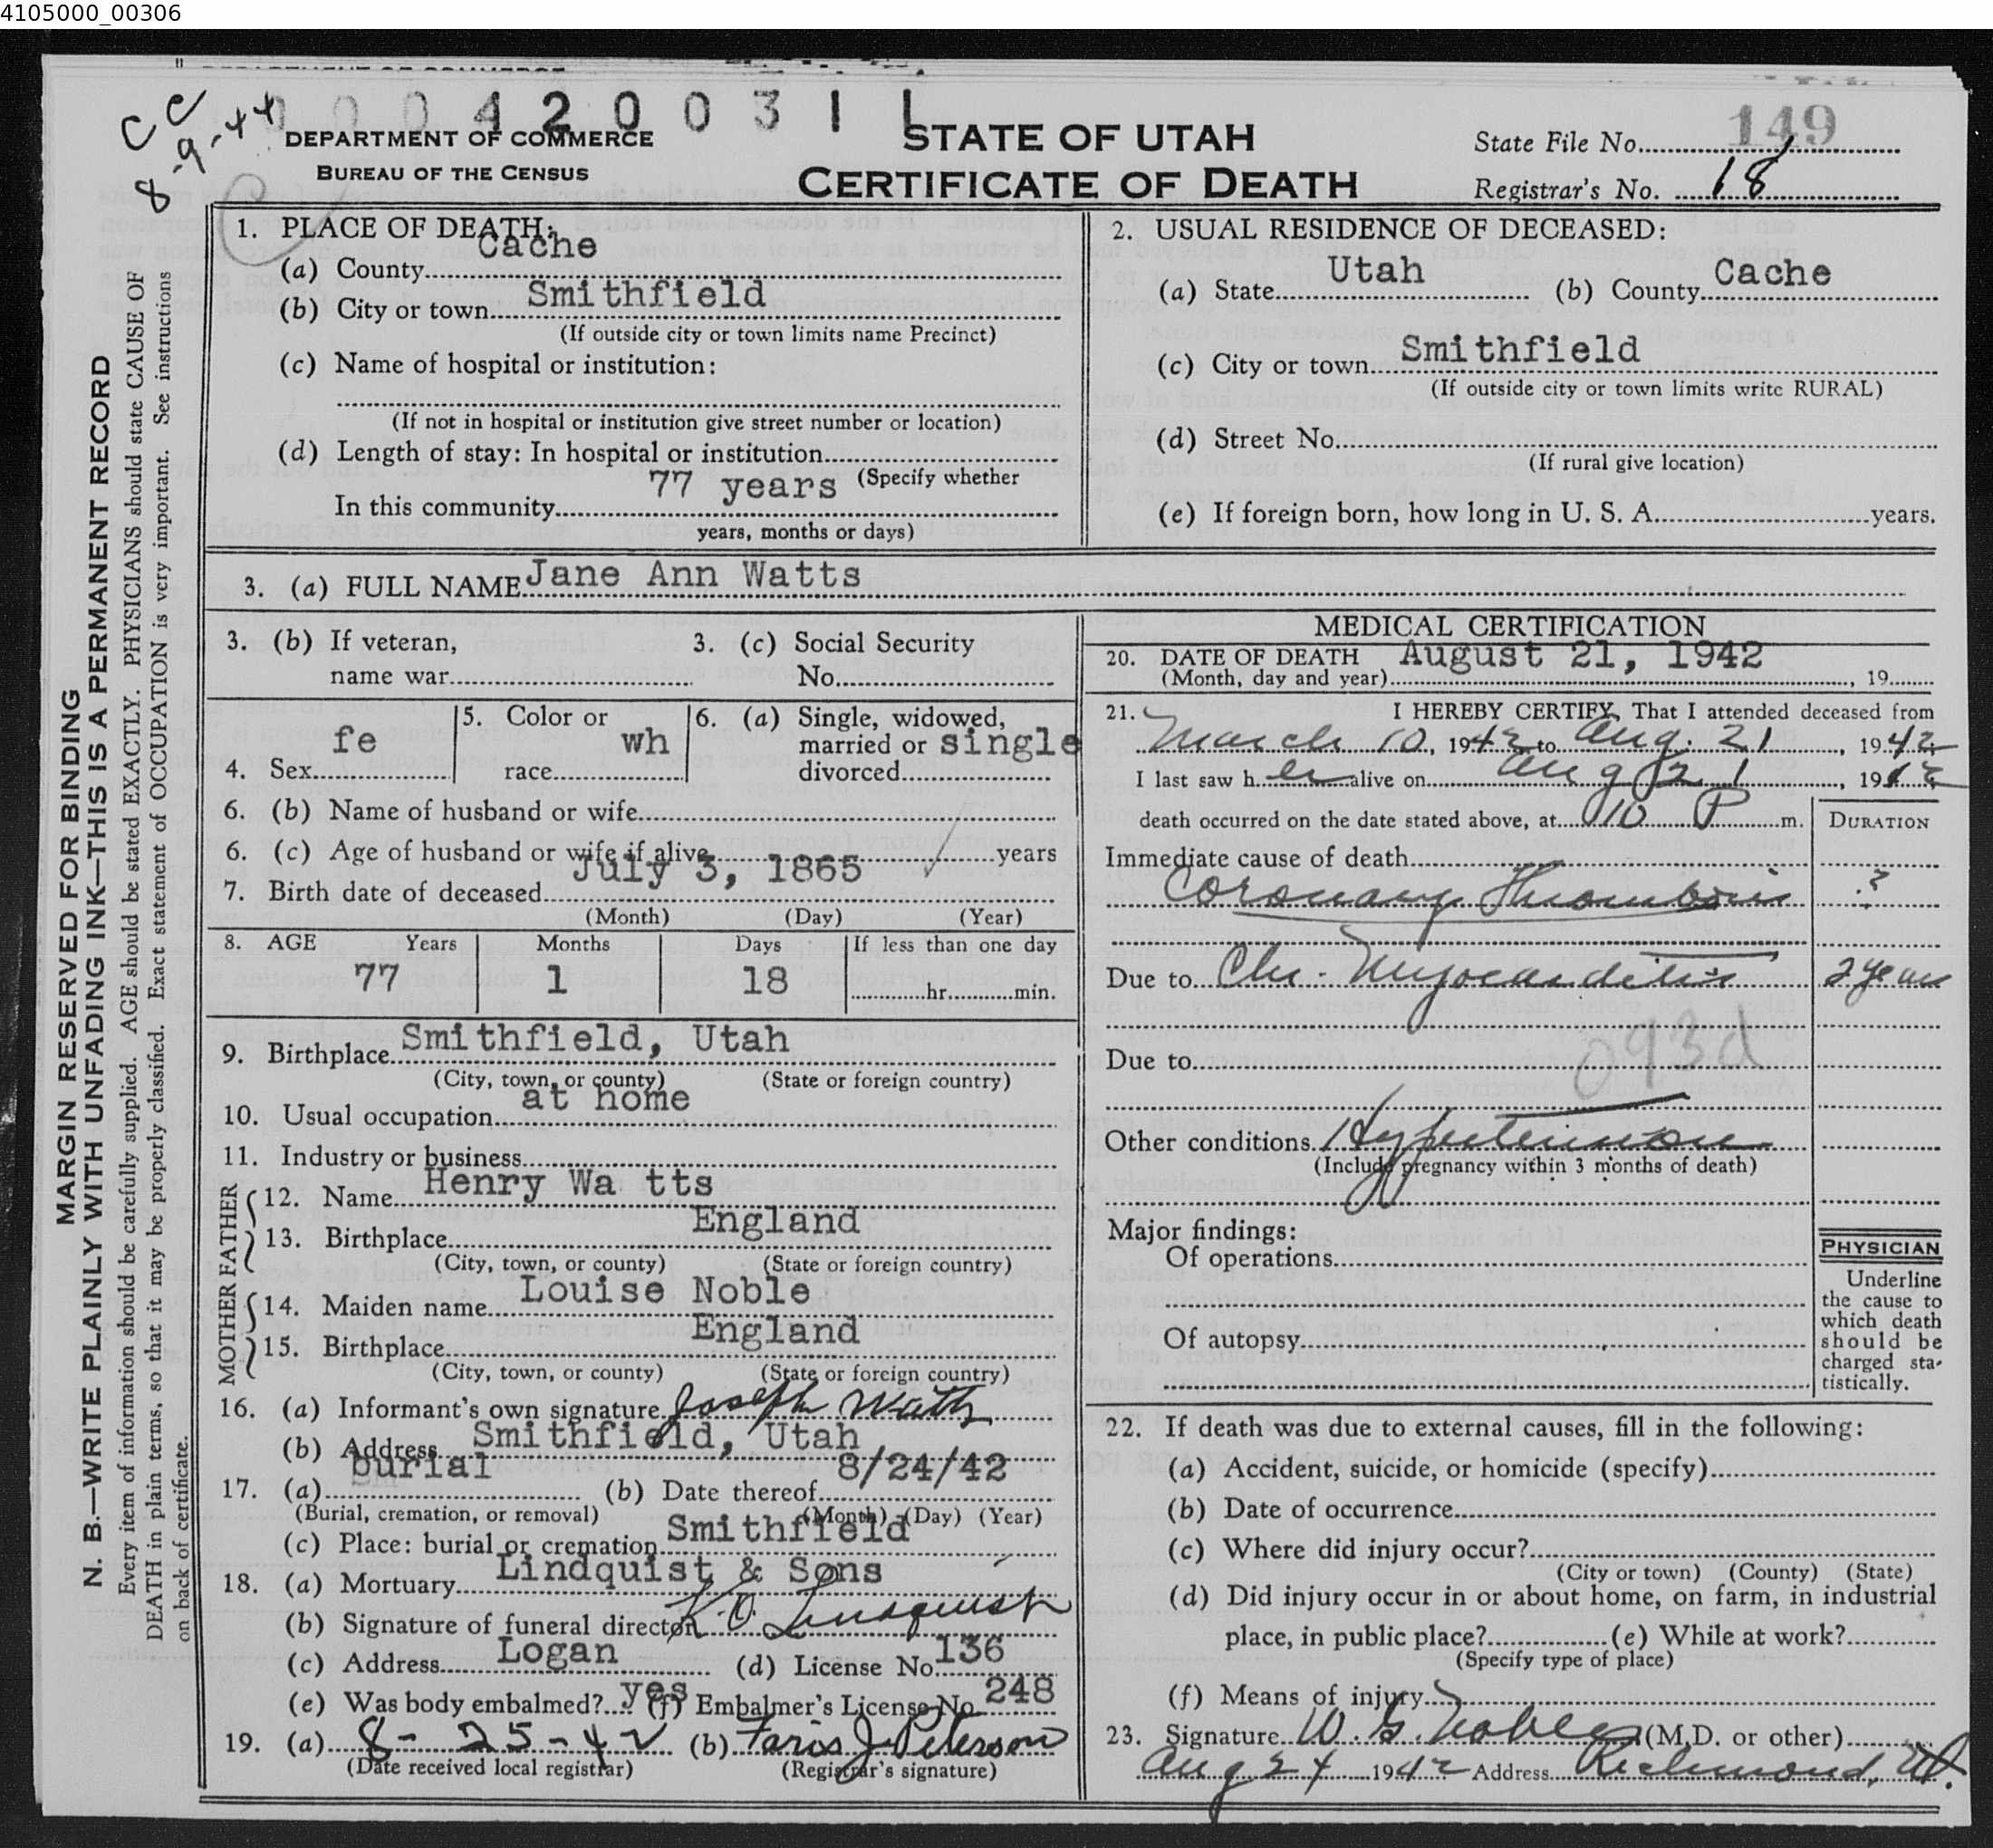 4105000_00306
CC
8-9-44
0 0 0 4 2 0 0 3 1 1
DEPARTMENT OF COMMERCE
BUREAU OF THE CENSUS
STATE OF UTAH
CERTIFICATE OF DEATH
State File No. 149
Registrar's No. 18
MARGIN RESERVED FOR BINDING
N. B.—WRITE PLAINLY WITH UNFADING INK—THIS IS A PERMANENT RECORD
Every item of information should be carefully supplied. AGE should be stated EXACTLY. PHYSICIANS should state CAUSE OF
DEATH in plain terms, so that it may be properly classified. Exact statement of OCCUPATION is very important. See instructions
on back of certificate.
1. PLACE OF DEATH:
(a) County Cache
(b) City or town Smithfield
(If outside city or town limits name Precinct)
(c) Name of hospital or institution:
(If not in hospital or institution give street number or location)
(d) Length of stay: In hospital or institution
(Specify whether
In this community 77 years
years, months or days)
2. USUAL RESIDENCE OF DECEASED:
(a) State Utah (b) County Cache
(c) City or town Smithfield
(If outside city or town limits write RURAL)
(d) Street No.
(If rural give location)
(e) If foreign born, how long in U. S. A. years.
3. (a) FULL NAME Jane Ann Watts
3. (b) If veteran,
name war
3. (c) Social Security
No.
4. Sex fe
5. Color or
race wh
6. (a) Single, widowed,
married or single
divorced
6. (b) Name of husband or wife
6. (c) Age of husband or wife if alive years
7. Birth date of deceased July 3, 1865
(Month) (Day) (Year)
8. AGE Years Months Days If less than one day
77 1 18 hr. min.
9. Birthplace Smithfield, Utah
(City, town, or county) (State or foreign country)
10. Usual occupation at home
11. Industry or business
FATHER
12. Name Henry Wa tts
13. Birthplace England
(City, town, or county) (State or foreign country)
MOTHER
14. Maiden name Louise Noble
15. Birthplace England
(City, town, or county) (State or foreign country)
16. (a) Informant's own signature Joseph Watts
(b) Address Smithfield, Utah
17. (a) burial (b) Date thereof 8/24/42
(Burial, cremation, or removal) (Month) (Day) (Year)
(c) Place: burial or cremation Smithfield
18. (a) Mortuary Lindquist & Sons
(b) Signature of funeral director Lindquist
(c) Address Logan (d) License No. 136
(e) Was body embalmed? yes (f) Embalmer's License No. 248
19. (a) 8-25-42 (b) Faris J Peterson
(Date received local registrar) (Registrar's signature)
MEDICAL CERTIFICATION
20. DATE OF DEATH August 21, 1942
(Month, day and year) , 19
21. I HEREBY CERTIFY, That I attended deceased from
March 10, 1942 to Aug. 21, 1942
I last saw h er alive on Aug 21, 1942
death occurred on the date stated above, at 10 P m.
DURATION
Immediate cause of death
Coronary Thrombosis ?
Due to Chr. Myocarditis 2 years
093d
Due to
Other conditions Hypertension
(Include pregnancy within 3 months of death)
Major findings:
Of operations
Of autopsy
PHYSICIAN
Underline
the cause to
which death
should be
charged sta-
tistically.
22. If death was due to external causes, fill in the following:
(a) Accident, suicide, or homicide (specify)
(b) Date of occurrence
(c) Where did injury occur?
(City or town) (County) (State)
(d) Did injury occur in or about home, on farm, in industrial
place, in public place? (e) While at work?
(Specify type of place)
(f) Means of injury
23. Signature W. G. Noble (M.D. or other)
Aug 24 1942 Address Richmond, Ut.